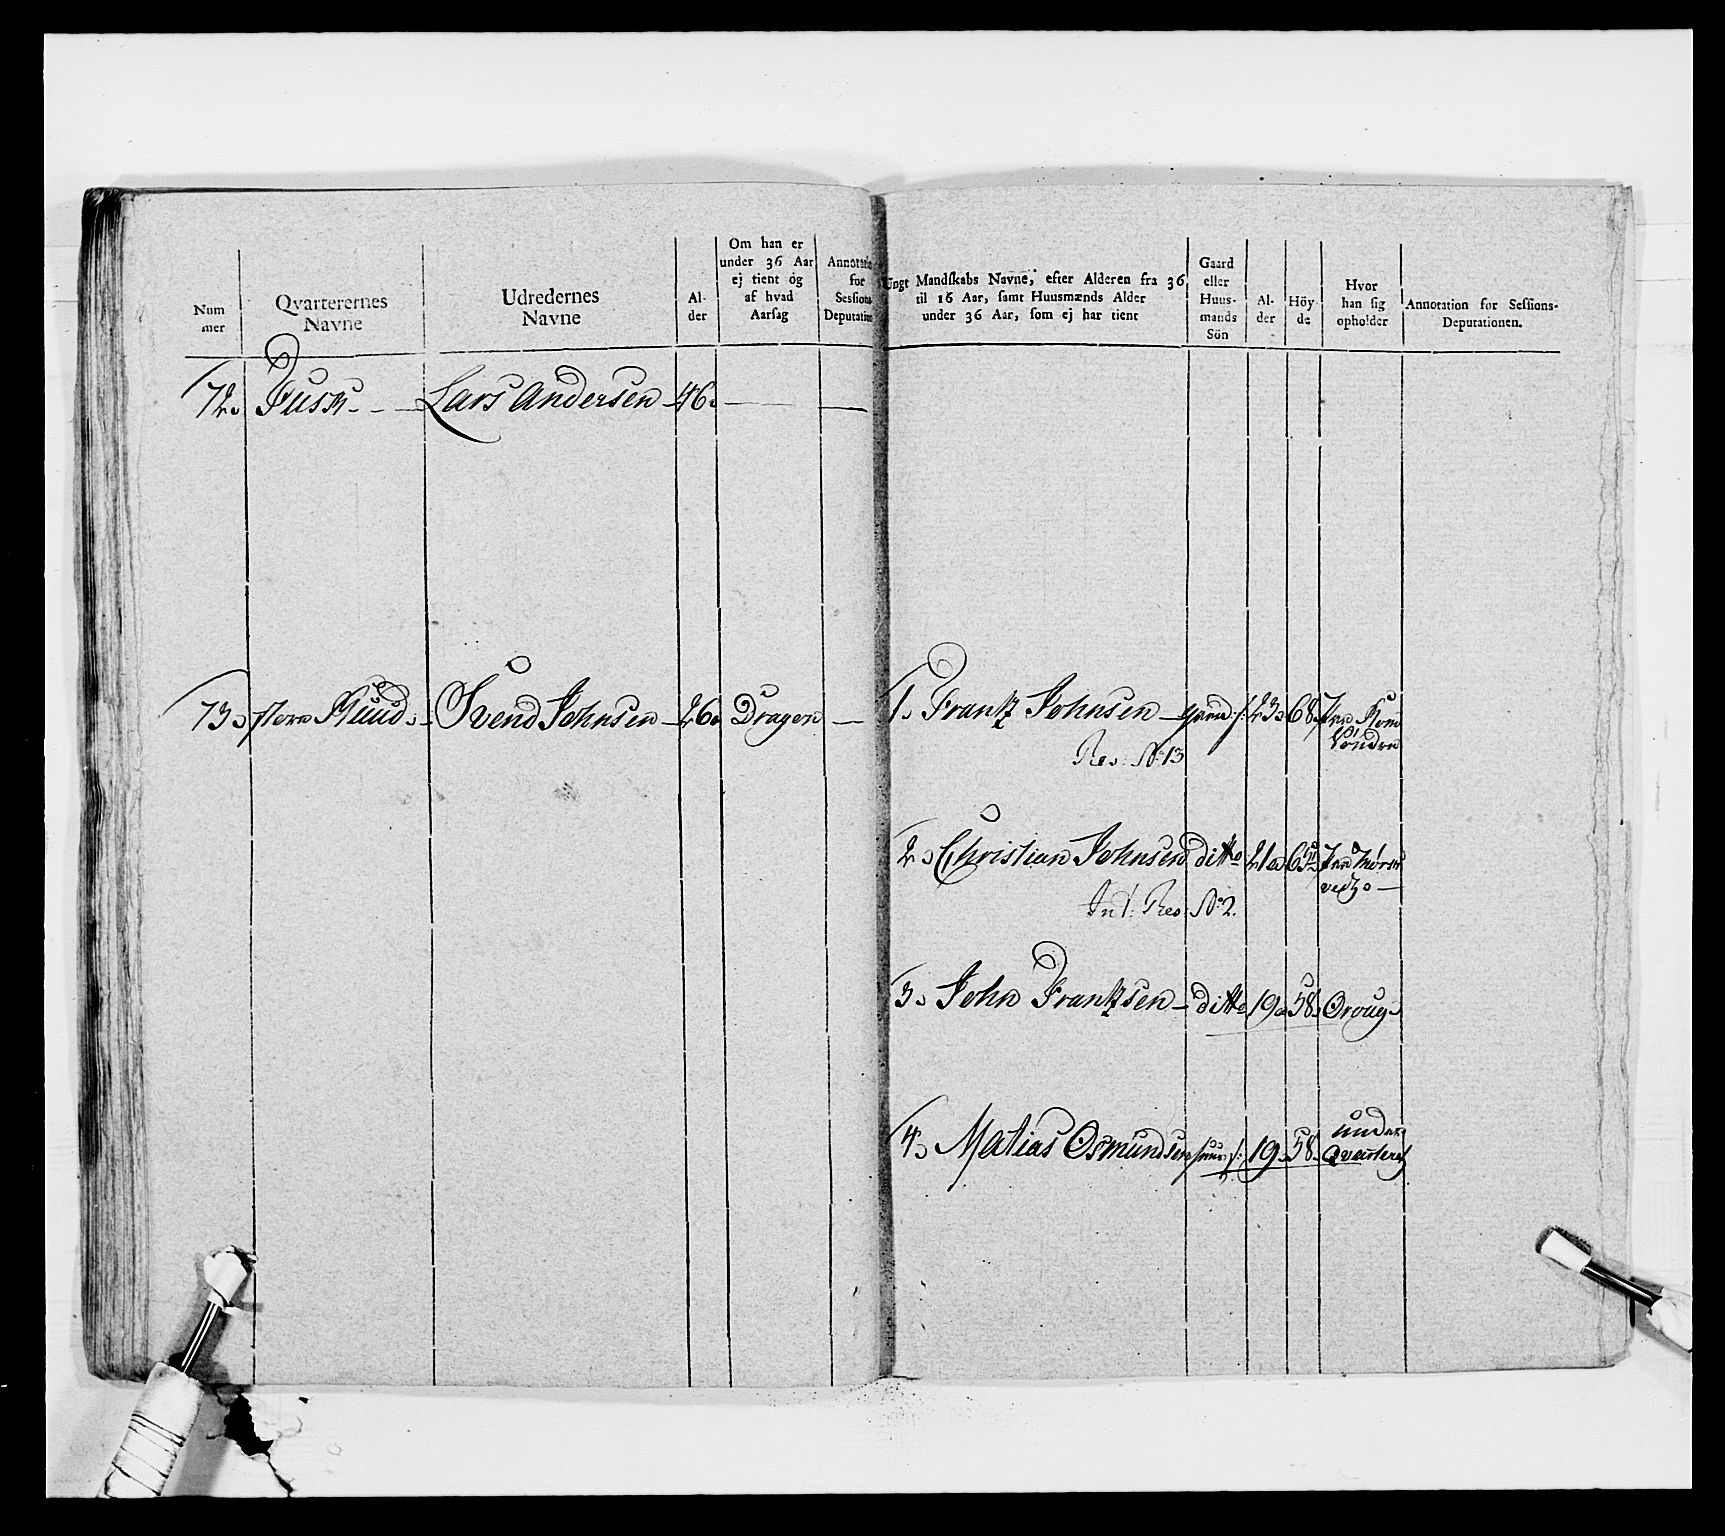 Num
mer
Qvarterernes
Navne
Udredernes
Navne
Al-
der
Om han er
under 36 Aar
ej tient og
af hvad
Aarsag
Annotation
for
Sessions
Deputation
Ungt Mandskabs Navne, efter Alderen fra 36
til 16 Aar, samt Huusmænds Alder
under 36 Aar, som ej har tient
Gaard
eller
Huus-
mands
Sön
Al-
der
Höy-
de
Hvor
han sig
opholder
Annotation for Sessions-
Deputationen.
72. Lars Andersen 46.
73. Svend Johnsen 26. Dragon
1. Frantz Johnsen 23. 68.
Res: No 13
2. Christian Johnsen ditto 21.
Int: Res: No 2.
3. John Frantzsen ditto 19. 58.
4. Matias Osmundsen 19. 58. under
Qvarteret